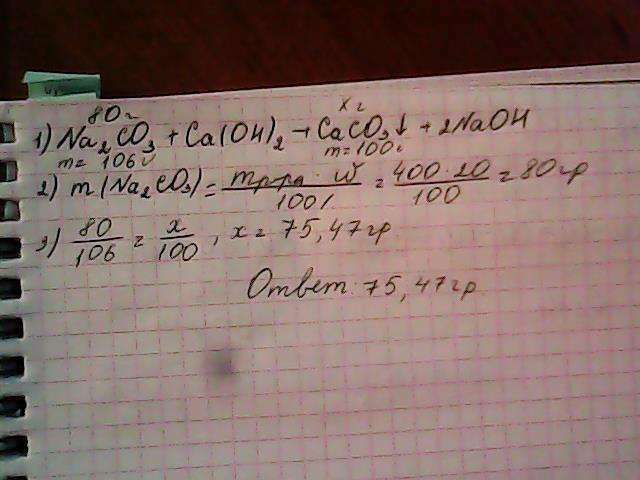 80 г x г
1) Na2CO3 + Ca(OH)2 → CaCO3↓ + 2NaOH
m = 106 г m = 100 г
2) m(Na2CO3) = mр-ра · W / 100% = 400 · 20 / 100 = 80 гр
3) 80 / 106 = x / 100, x = 75,47 гр
Ответ: 75,47 гр